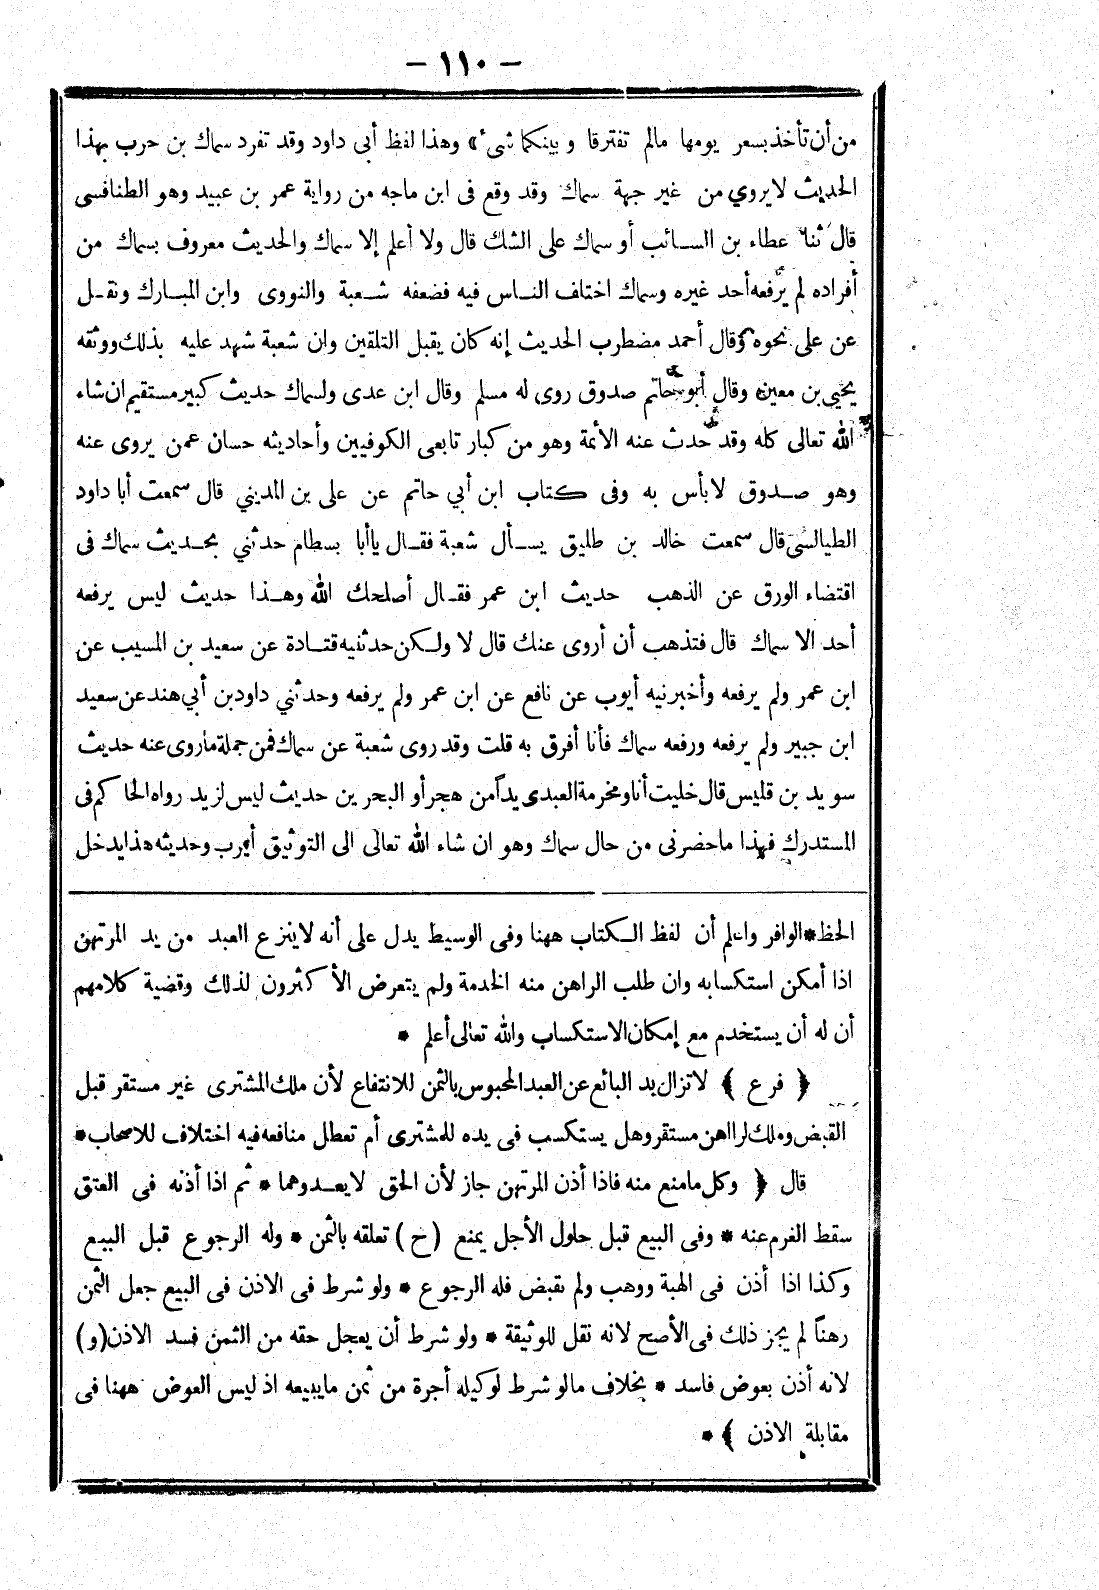 - ١١٠ -
من أن تأخذ بسعر يومها مالم تفترقا وبينكما شىء » وهذا لفظ أبى داود وقد تفرد سماك بن حرب بهذا
الحديث لا يروي من غير جهة سماك وقد وقع فى ابن ماجه من رواية عمر بن عبيد وهو الطنافسى
قال ثنا عطاء بن السائب أو سماك على الشك قال ولا أعلم إلا سماك والحديث معروف بسماك من
أفراده لم يرفعه أحد غيره وسماك اختلف الناس فيه فضعفه شعبة والنووى وابن المبارك ونقل
عن على نحوه وقال أحمد مضطرب الحديث إنه كان يقبل التلقين وان شعبة شهد عليه بذلك ووثقه
يحيى بن معين وقال أبو حاتم صدوق روى له مسلم وقال ابن عدى ولسماك حديث كبير مستقيم ان شاء
الله تعالى كله وقد حدث عنه الأئمة وهو من كبار تابعى الكوفيين وأحاديثه حسان عمن يروى عنه
وهو صدوق لابأس به وفى كتاب ابن أبي حاتم عن على بن المديني قال سمعت أبا داود
الطيالسى قال سمعت خالد بن طليق يسأل شعبة فقال ياأبا بسطام حدثني بحديث سماك فى
اقتضاء الورق عن الذهب حديث ابن عمر فقال أصلحك الله وهذا حديث ليس يرفعه
أحد الا سماك قال فتذهب أن أروى عنك قال لا ولكن حدثنيه قتادة عن سعيد بن المسيب عن
ابن عمر ولم يرفعه وأخبرنيه أيوب عن نافع عن ابن عمر ولم يرفعه وحدثني داود بن أبي هند عن سعيد
ابن جبير ولم يرفعه ورفعه سماك فأنا أفرق به قلت وقد روى شعبة عن سماك فمن جملة ماروى عنه حديث
سويد بن قليس قال خليت أنا ومخرمة العبدى يداً من هجر أو البحرين حديث ليس لزيد رواه الحاكم فى
المستدرك فهذا ماحضرنى من حال سماك وهو ان شاء الله تعالى الى التوثيق أقرب وحديثه هذا يدخل
الحظ * الوافر واعلم أن لفظ الكتاب ههنا وفى الوسيط يدل على أنه لا ينزع العبد من يد المرتهن
اذا أمكن استكسابه وان طلب الراهن منه الخدمة ولم يتعرض الأكثرون لذلك وقضية كلامهم
أن له أن يستخدم مع إمكان الاستكساب والله تعالى أعلم *
﴿ فرع ﴾ لا تزال يد البائع عن العبد المحبوس بالثمن للانتفاع لأن ملك المشترى غير مستقر قبل
القبض وملك الراهن مستقر وهل يستكسب فى يده للمشترى أم تعطل منافعه فيه اختلاف للاصحاب *
قال ﴿ وكل مامنع منه فاذا أذن المرتهن جاز لأن الحق لايعدوهما * ثم اذا أذنه فى العتق
سقط الغرم عنه * وفى البيع قبل حلول الأجل يمنع (ح) تعلقه بالثمن * وله الرجوع قبل البيع
وكذا اذا أذن فى الهبة ووهب ولم يقبض فله الرجوع * ولو شرط فى الاذن فى البيع جعل الثمن
رهناً لم يجز ذلك فى الأصح لانه نقل للوثيقة * ولو شرط أن يعجل حقه من الثمن فسد الاذن (و)
لانه أذن بعوض فاسد * بخلاف مالو شرط لوكيله أجرة من ثمن مايبيعه اذ ليس العوض ههنا فى
مقابلة الاذن ﴾ *